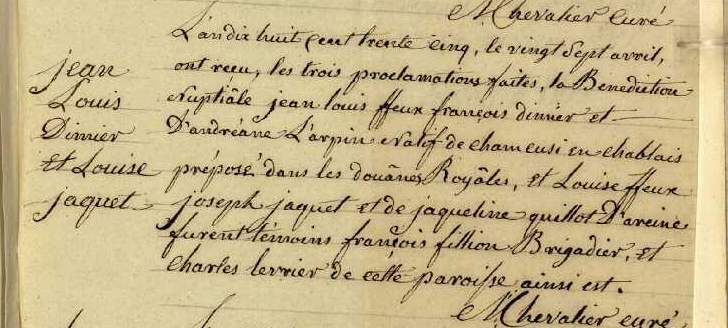 M. Chevalier curé
L'an dix huit cent trente cinq, le vingt sept avril,
jean
ont reçu, les trois proclamations faites, la Benediction
Louis
nuptiâle jean louis ffeux françois dimier et
Dimier
D'andréane L'arpin natif de chameusi en chablais
et Louise
préposé dans les douânes Royâles, et Louise ffeux
jaquet
joseph jaquet et de jaqueline guillot D'areine
furent témoins françois fillion Brigadier, et
charles lerrier de cette paroisse ainsi est.
M. Chevalier curé